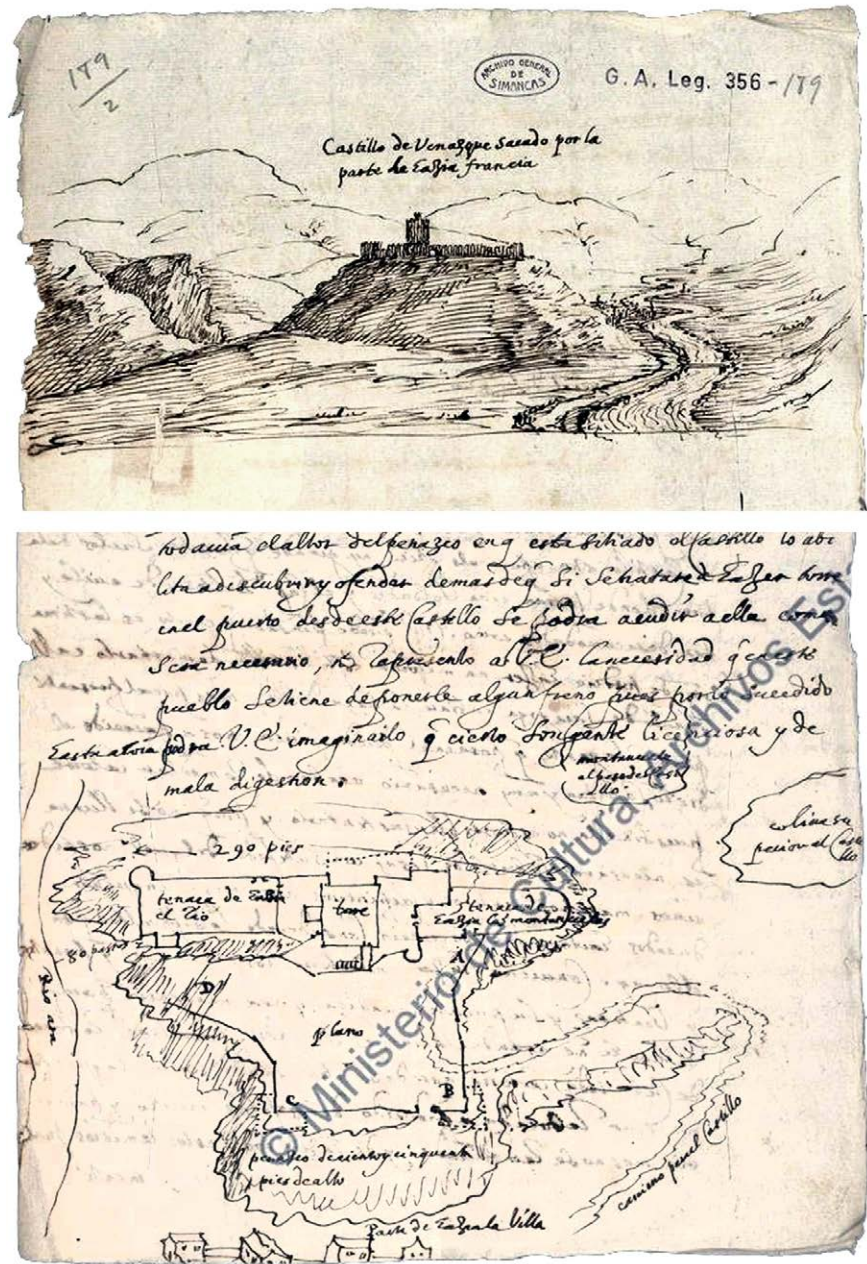 179
2
ARCHIVO GENERAL
DE
SIMANCAS
G. A. Leg. 356-179
Castillo de Venazque sacado por la
parte de hazia francia
todauia el altor del penazco en q esta sitiado el Castillo lo abi
lita a discubrir y ofender demas de q si se tratare de hazer torre
en el puerto desde este Castillo se podra acudir a ella como
sera necesario,
represento a V.E. la necesidad q en este
pueblo se tiene de ponerle algun freno pues por lo sucedido
hasta aora podra V.E. imaginarlo q cierto son gente licenciosa y de
mala digestion.
montañuela
al peso del casti
llo
colina su
perior al Casti
llo
290 pies
tenaza de hazia
el Rio
torre
tenaza de
hazia las montañuelas
80 pies
A
D
Rio
plano
C
B
penazco de ciento y cinquenta
pies de alto
camino para el Castillo
Parte de hazia la Villa
© Ministerio de Cultura. Archivos Es